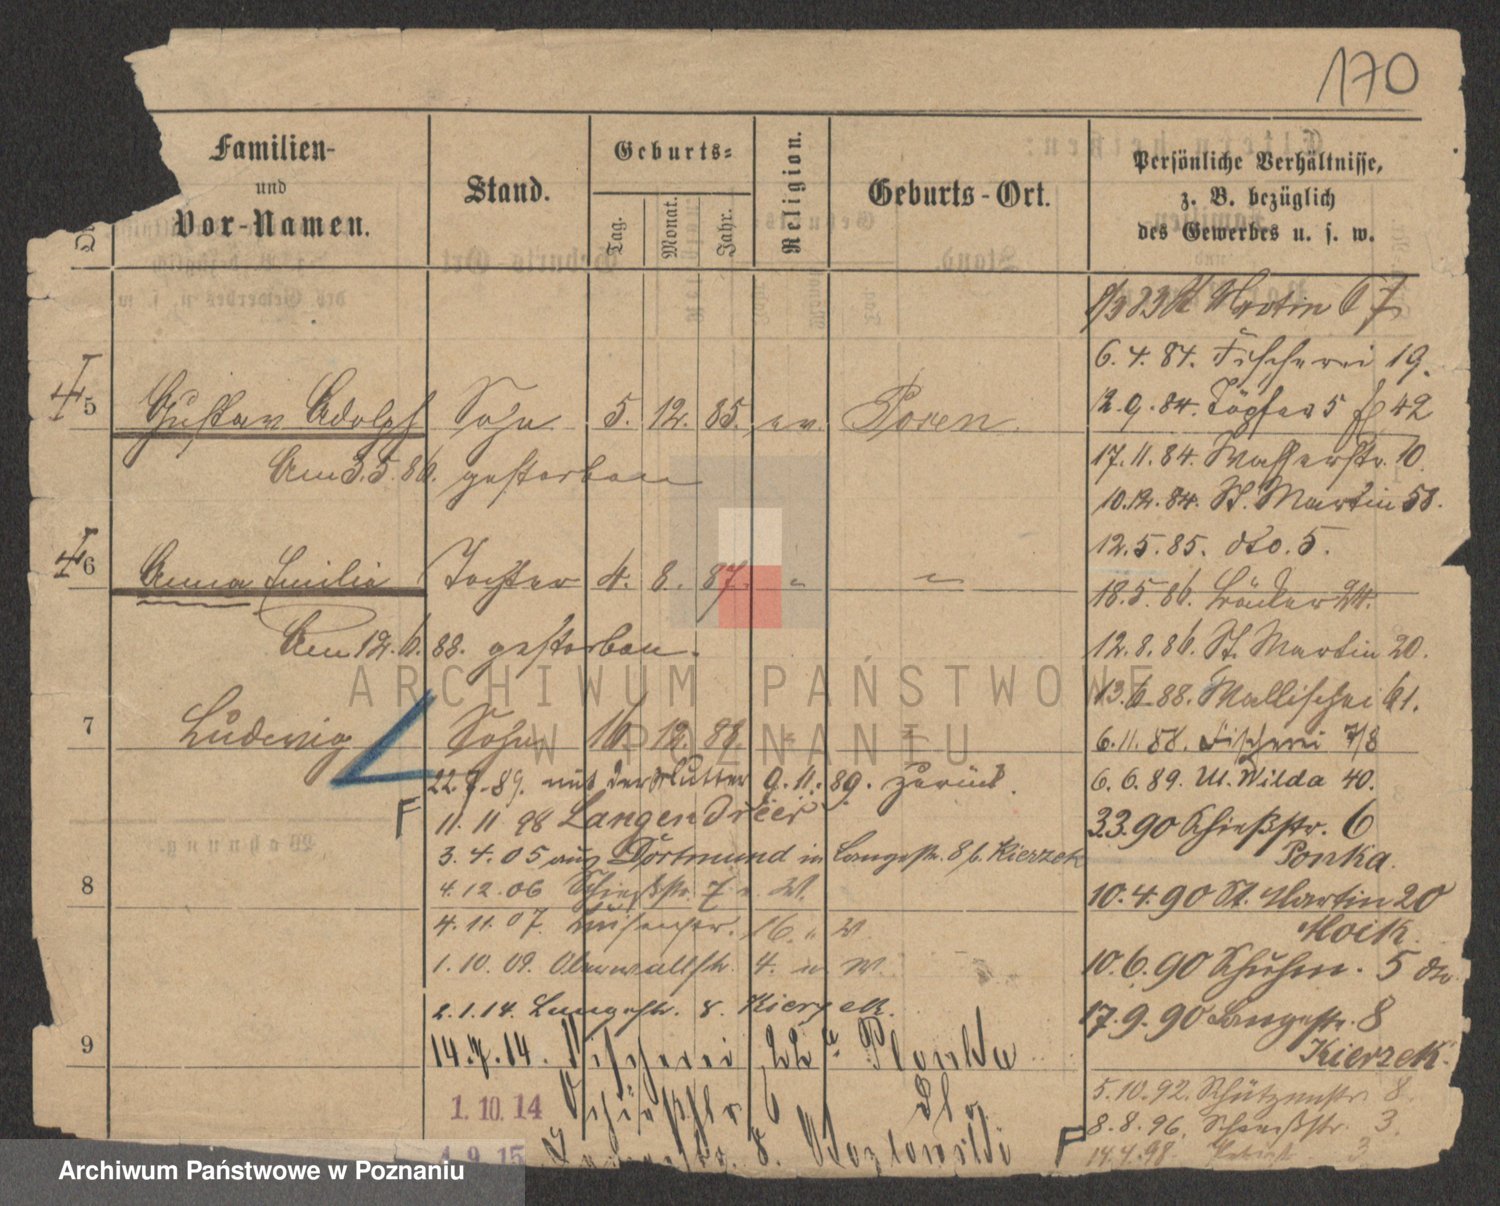 170
Familien-
und
Vor-Namen.
Stand.
Geburts-
Tag.
Monat.
Jahr.
Religion.
Geburts-Ort.
Persönliche Verhältnisse,
z. B. bezüglich
des Gewerbes u. s. w.
Martin 67
6.4.84. Fischerei 19.
5 Gustav Adolph Sohn 5. 12. 85. ev. Posen.
12.9.84. 5 42
Am 3.5.86. gestorben
17.11.84. Wasserstr. 10
10.12.84. St. Martin 58.
12.5.85. dto. 5.
6 Anna Emilie Tochter 4. 8. 87. " "
18.5.86. Bäcker 24.
Am 12.6.88. gestorben.
12.8.86. St. Martin 20.
13.6.88. Wallischei 61.
7 Ludwig Sohn 16. 12. 88. " "
6.11.88. Fischerei 7/8
22.7.89. mit der Mutter 9.11.89. zurück.
6.6.89. U. Wilda 40.
F 11.11 98 Langendreer
3.3.90 Schießstr. 6
Ponka.
3.4.05 aus Dortmund in Langestr. 8 b. Kierzek
8
4.12.06 Schießstr. 7
10.4.90 St. Martin 20
Moik.
4.11.07. Luisenstr. 16. " W
10.6.90 Schuhm. 5
1.10.09. Oberwallstr. 4. W.
2.1.14. Langestr. 8. Kierzek.
17.9.90 Langestr. 8
Kierzek.
9
14.7.14. Fischerei 22a Plonka
5.10.92. Schützenstr. 8.
1.10.14 Schießstr 6
8.8.96. Schießstr. 3.
1.9.15 8.
F 14.4.98. 3
ARCHIWUM PAŃSTWOWE
W POZNANIU
Archiwum Państwowe w Poznaniu